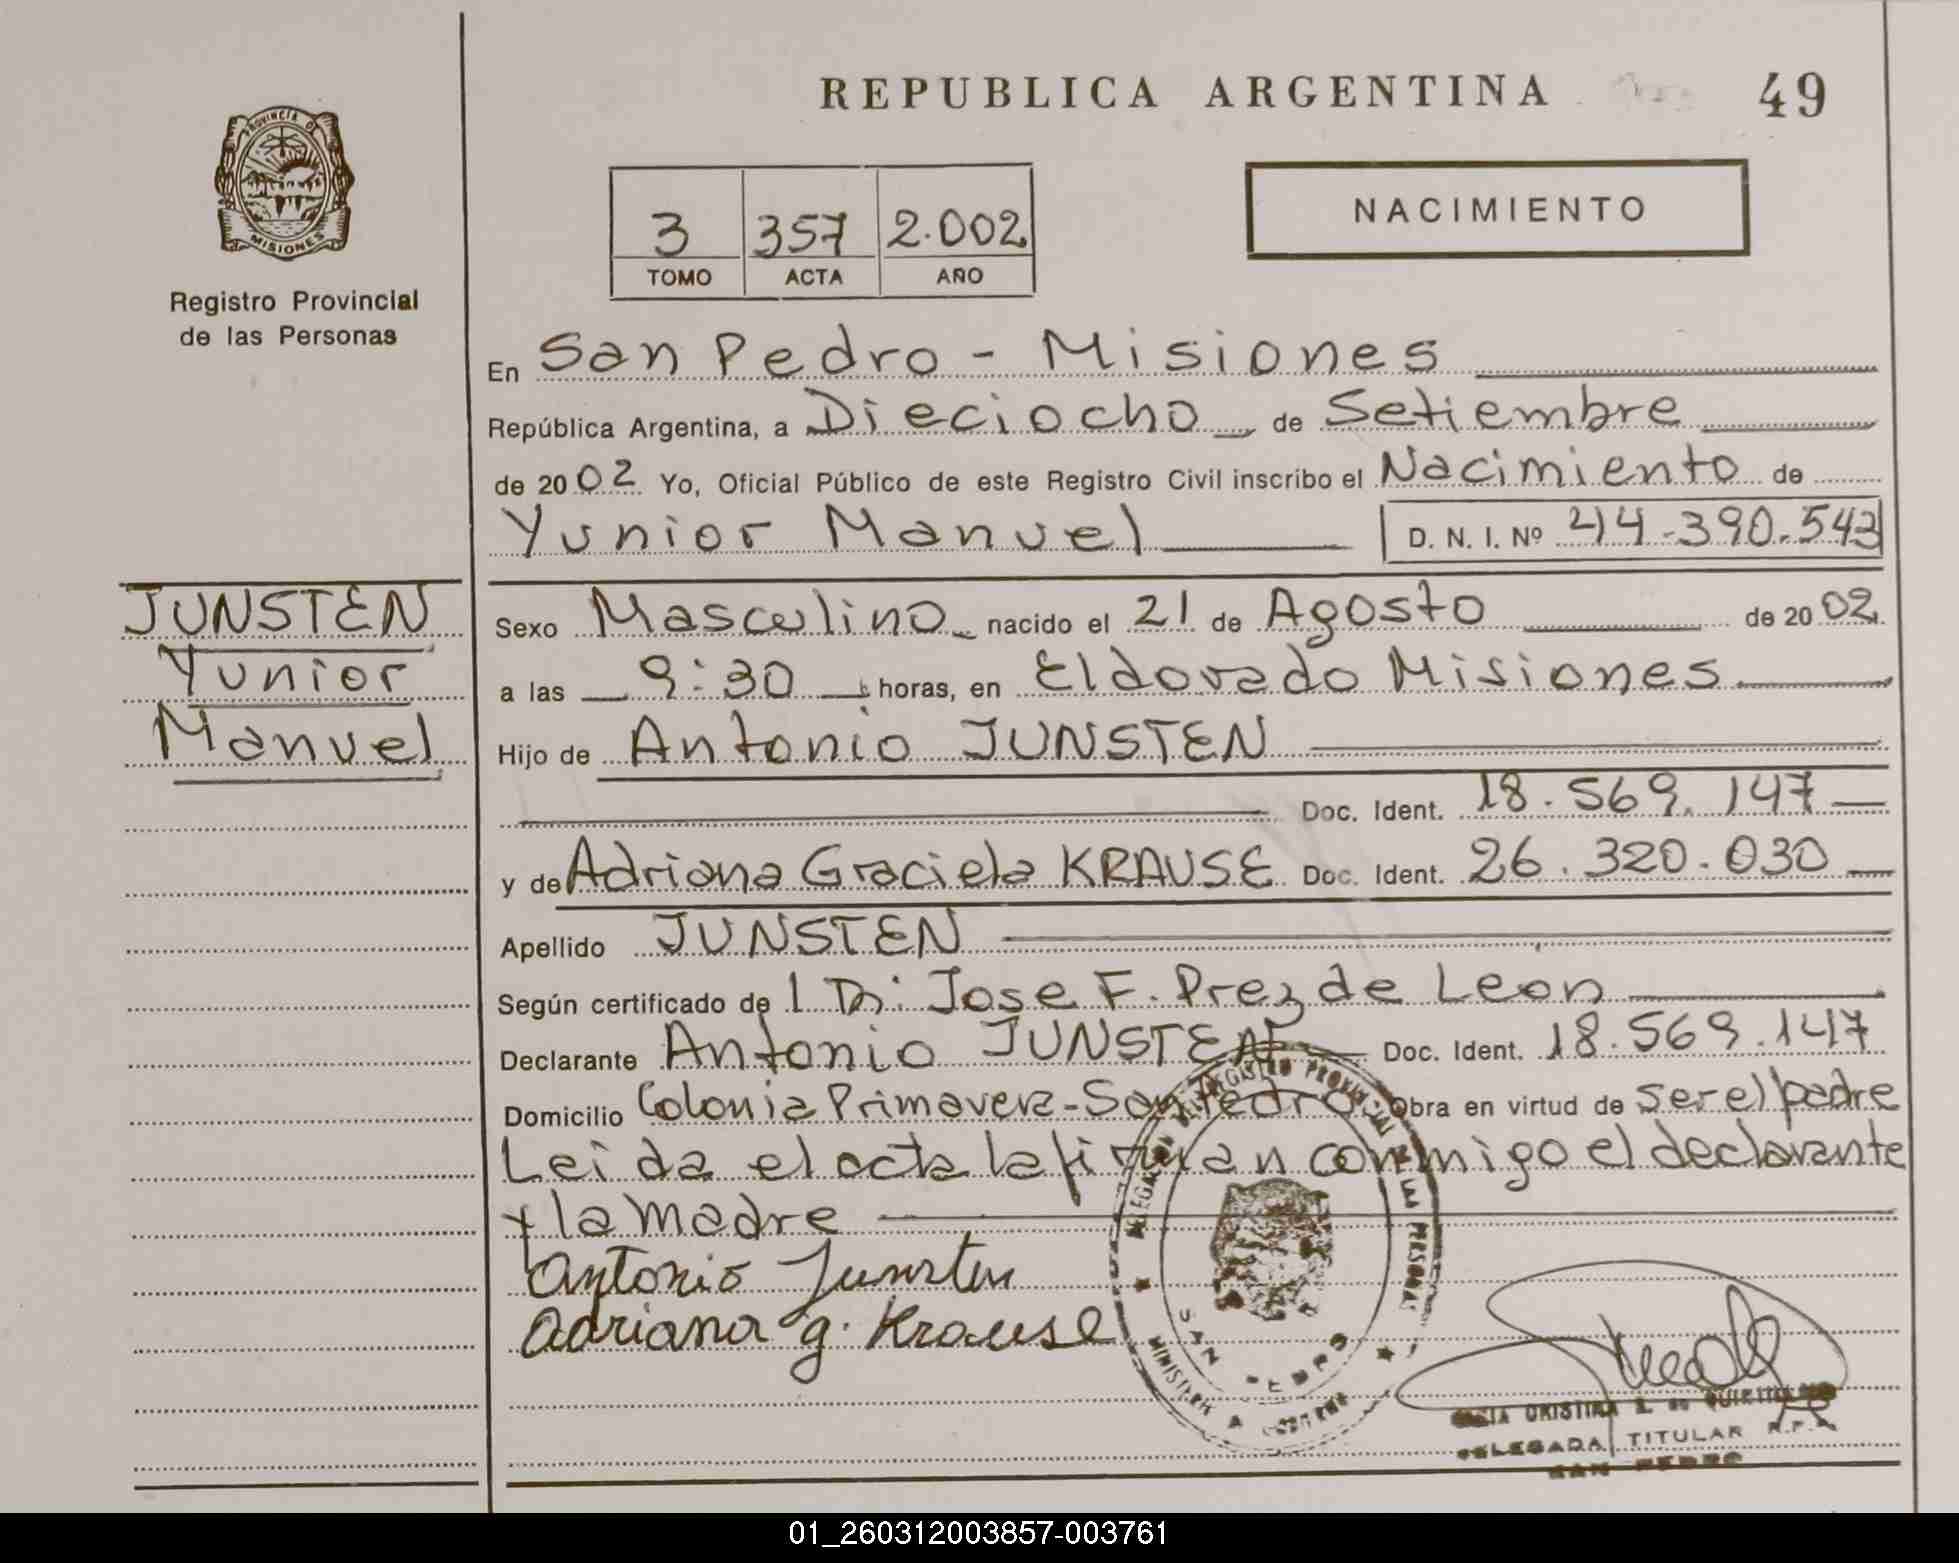 REPUBLICA ARGENTINA
49
PROVINCIA DE
MISIONES
Registro Provincial
de las Personas
3 357 2.002
TOMO ACTA AÑO
NACIMIENTO
En San Pedro - Misiones
República Argentina, a Dieciocho de Setiembre
de 2002 Yo, Oficial Público de este Registro Civil inscribo el Nacimiento de
Yunior Manuel D. N. I. Nº 44.390.543
JUNSTEN
Yunior
Manuel
Sexo Masculino nacido el 21 de Agosto de 2002
a las 9:30 horas, en Eldorado Misiones
Hijo de Antonio JUNSTEN
Doc. Ident. 18.569.147
y de Adriana Graciela KRAUSE Doc. Ident. 26.320.030
Apellido JUNSTEN
Según certificado de Jose F. Prez de Leon
Declarante Antonio JUNSTEN Doc. Ident. 18.569.147
Domicilio Colonia Primavera - San Pedro. Obra en virtud de ser el padre
Leida el acta la firman conmigo el declarante
y la madre
Antonio Junsten
Adriana g. Krause
SAN PEDRO
CRISTINA
DELEGADA TITULAR R.P.
SAN PEDRO
01_260312003857-003761